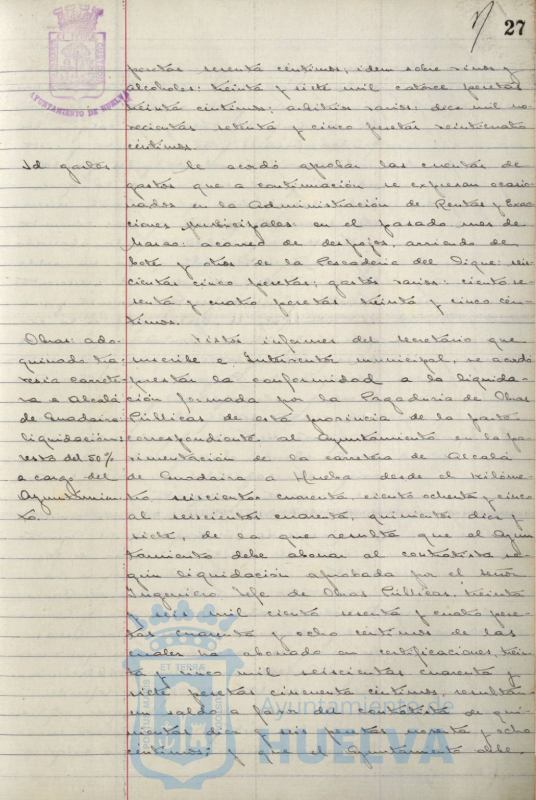 27
AYUNTAMIENTO DE HUELVA
pesetas sesenta céntimos; idem sobre vinos y
alcoholes: treinta y siete mil catorce pesetas
treinta céntimos; arbitrios varios: doce mil no-
vecientas setenta y cinco pesetas veinticuatro
céntimos.
Id gastos
Se acordó aprobar las cuentas de
gastos que a continuación se expresan ocasio-
nados en la Administración de Rentas y Exac-
ciones Municipales en el pasado mes de
Marzo: acarreo de despojos, arriendo de
bote y otros de la Pescaderia del Dique: seis-
cientas cinco pesetas; gastos varios: ciento se-
senta y cuatro pesetas treinta y cinco cén-
timos.
Obras: ado-
quinado tra-
vesia carrete-
ra a Alcalá
de Guadaira
liquidaciones
resto del 50%
a cargo del
Ayuntamien-
to.
Vistos informes del Secretario que
suscribe e Interventor municipal, se acordó
prestar la conformidad a la liquida-
ción formada por la Pagaduria de Obras
Públicas de esta provincia de la parte
correspondiente al Ayuntamiento en la pa-
vimentación de la carretera de Alcalá
de Guadaira a Huelva desde el kilóme-
tro seiscientos cuarenta, ciento ochenta y cinco
al seiscientos cuarenta, quinientos diez y
siete, de la que resulta que el Ayun-
tamiento debe abonar al contratista se-
gún liquidación aprobada por el señor
Ingeniero Jefe de Obras Públicas, treinta
y seis mil ciento sesenta y cuatro pese-
tas cuarenta y ocho céntimos de las
cuales ha abonado en certificaciones, trein-
ta y cinco mil seiscientas cuarenta y
siete pesetas cincuenta céntimos, resultan-
un saldo a favor del contratista de qui-
nientas diez y seis pesetas noventa y ocho
céntimos; y que el Ayuntamiento debe
Ayuntamiento de
HUELVA